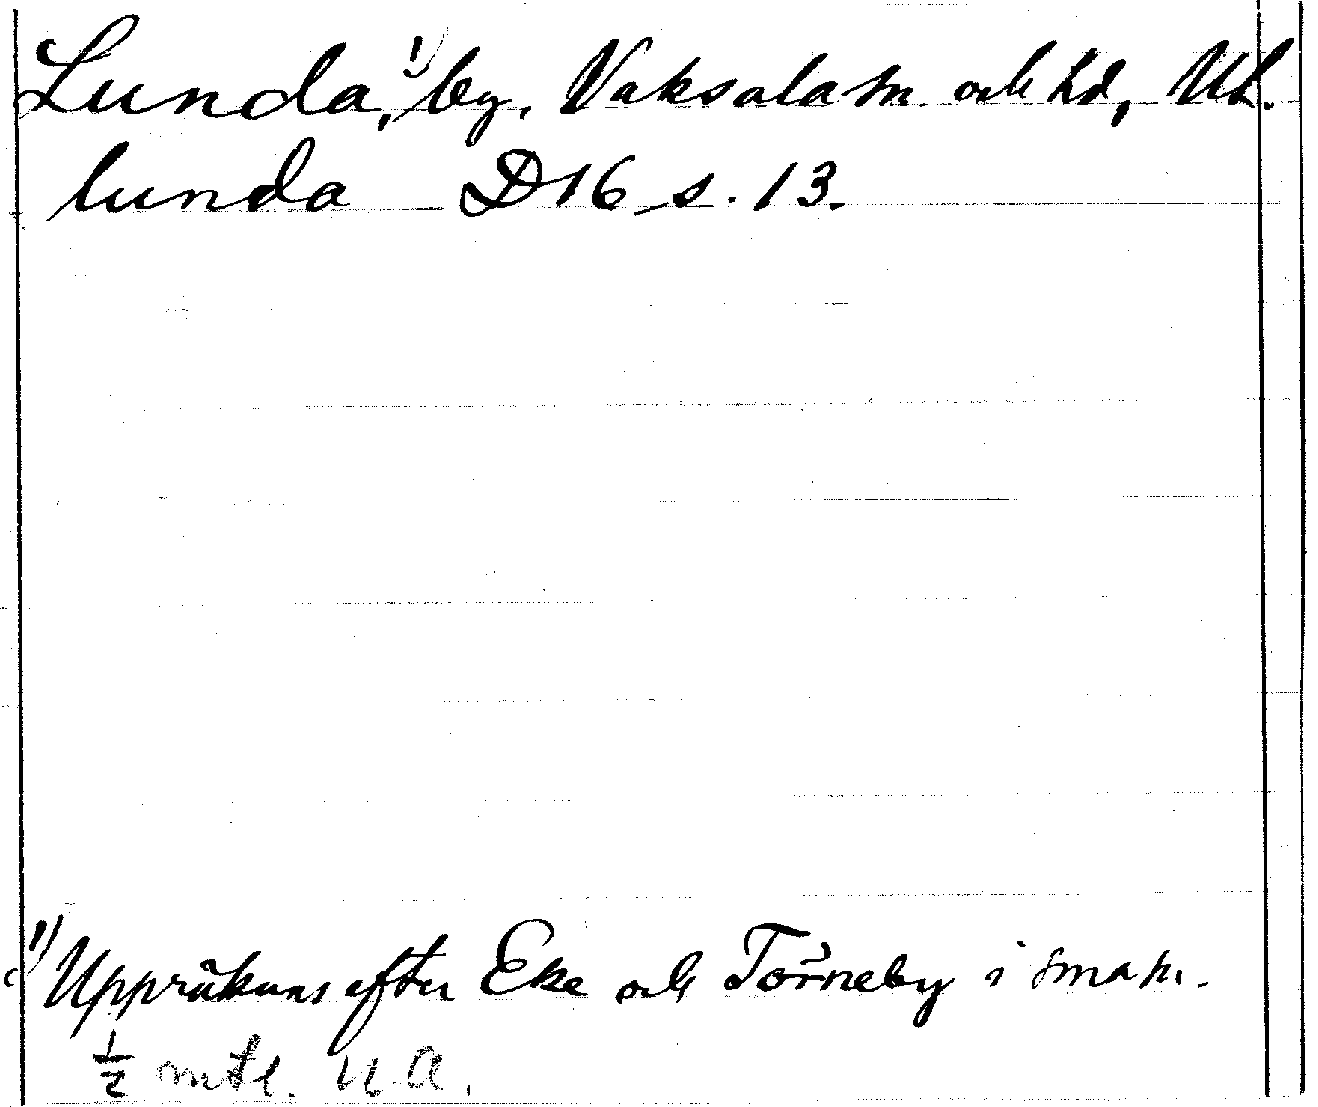 Lunda,¹⁾ by, Vaksala sn och hd, Upl.
lunda D16 s. 13.
¹⁾ Uppräknas efter Eke och Törneby i smä sn.
½ mtl. U.A.